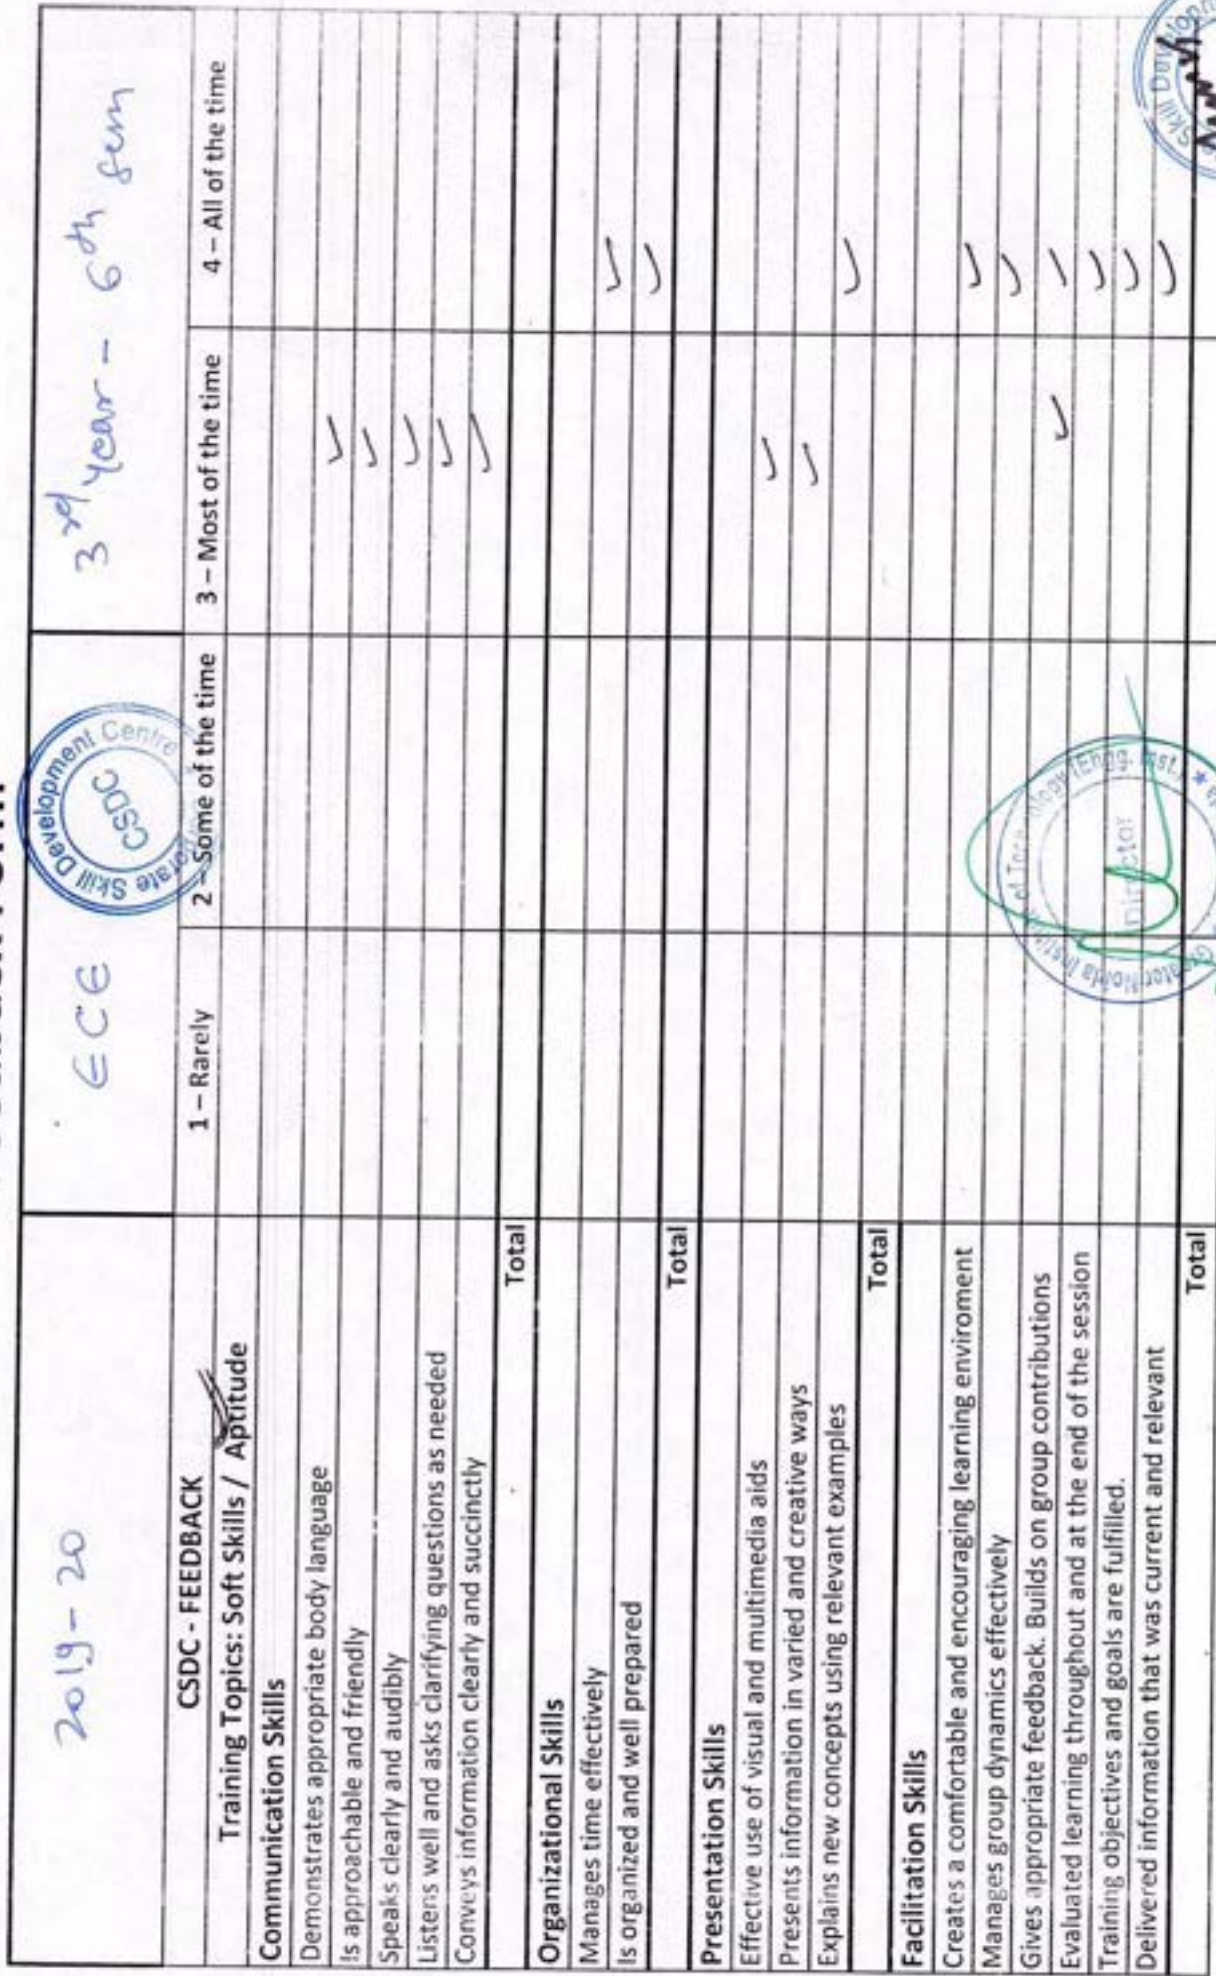 2019-20 ECE 3rd Year - 6th Sem
Corporate Skill Development Centre
CSDC
CSDC - FEEDBACK 1 – Rarely 2 – Some of the time 3 – Most of the time 4 – All of the time
Training Topics: Soft Skills / Aptitude
Communication Skills
Demonstrates appropriate body language ✓
Is approachable and friendly ✓
Speaks clearly and audibly ✓
Listens well and asks clarifying questions as needed ✓
Conveys information clearly and succinctly ✓
Total
Organizational Skills
Manages time effectively ✓
Is organized and well prepared ✓
Total
Presentation Skills
Effective use of visual and multimedia aids ✓
Presents information in varied and creative ways ✓
Explains new concepts using relevant examples ✓
Total
Facilitation Skills
Creates a comfortable and encouraging learning enviroment ✓
Manages group dynamics effectively ✓
Gives appropriate feedback. Builds on group contributions ✓ ✓
Evaluated learning throughout and at the end of the session ✓
Training objectives and goals are fulfilled. ✓
Delivered information that was current and relevant ✓
Total
Greater Noida Institute of Technology (Engg. Inst.)
Director
Skill